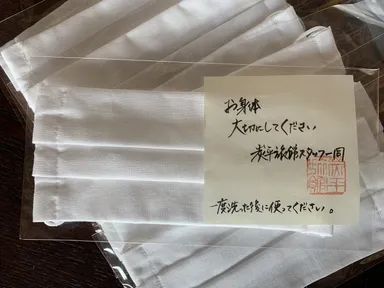 お身体
大切にしてください
炭平旅館スタッフ一同
一度洗った後に使ってください。